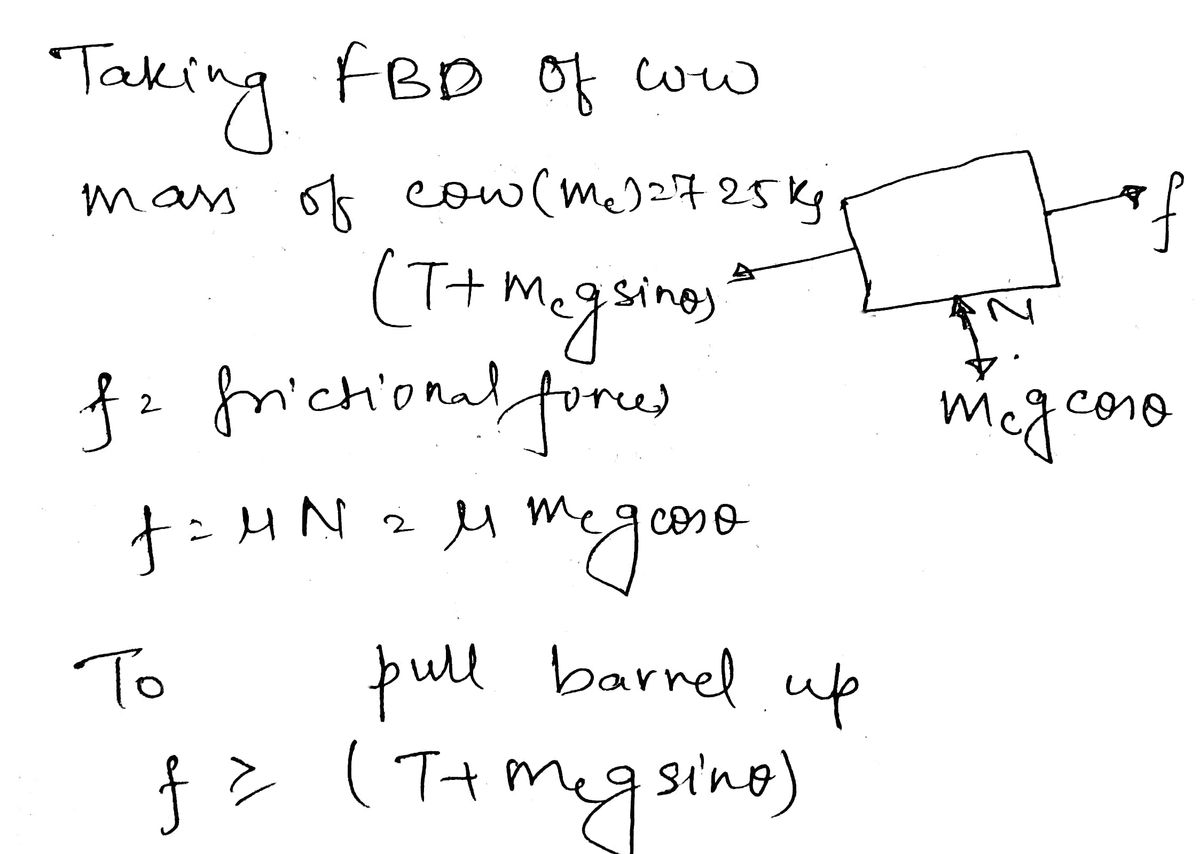 Taking FBD of cow
mass of cow (mc) = 725 kg
f
(T + mcg sinθ)
N
mcg cosθ
f = frictional forces
f = μN = μ mcg cosθ
To pull barrel up
f ≥ (T + mcg sinθ)